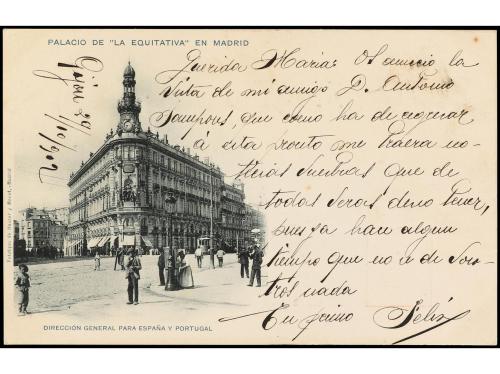 PALACIO DE "LA EQUITATIVA" EN MADRID
Gijon 29/10/902
Querida Maria: Os anuncio la
de mi amigo D. Antonio
que como ha de regresar
á esta pronto me traera no-
ticias vuestras que de
todas veras deseo tener,
pues ya hace algun
tiempo que no se de voso-
tros nada
Tu primo Felix
Fototipia de Hauser y Menet.-Madrid
DIRECCIÓN GENERAL PARA ESPAÑA Y PORTUGAL